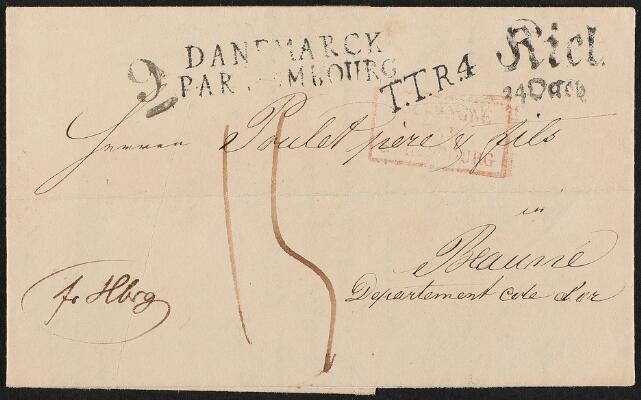 9
DANEMARCK
PAR HAMBOURG
T.T.R.4
Kiel.
24 Octb
Herren Poulet père & fils
in
Beaune
Departement Cote d'or
fr Hbrg
15